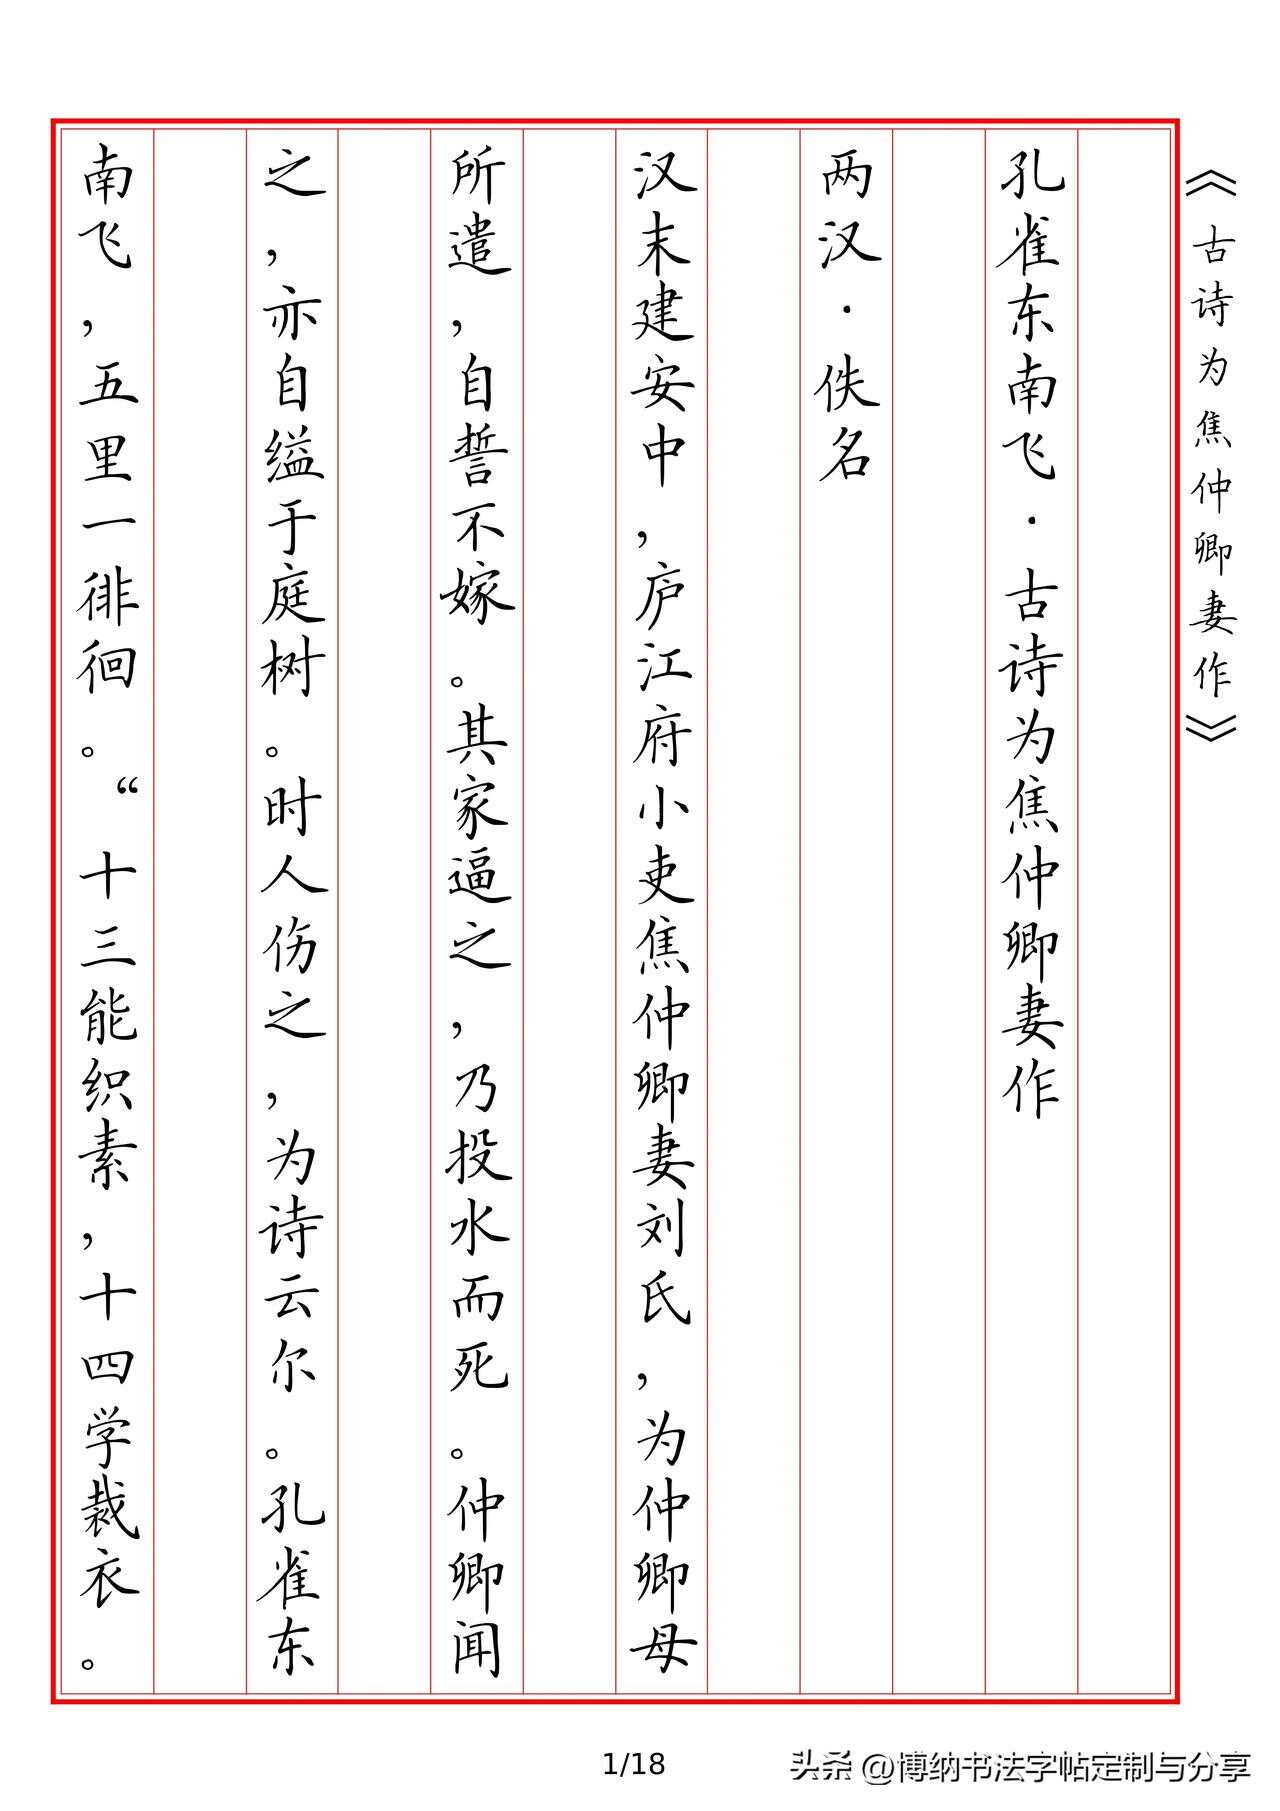 《古诗为焦仲卿妻作》
孔雀东南飞·古诗为焦仲卿妻作
两汉·佚名
汉末建安中，庐江府小吏焦仲卿妻刘氏，为仲卿母
所遣，自誓不嫁。其家逼之，乃投水而死。仲卿闻
之，亦自缢于庭树。时人伤之，为诗云尔。孔雀东
南飞，五里一徘徊。“十三能织素，十四学裁衣。
1/18
头条 @博纳书法字帖定制与分享